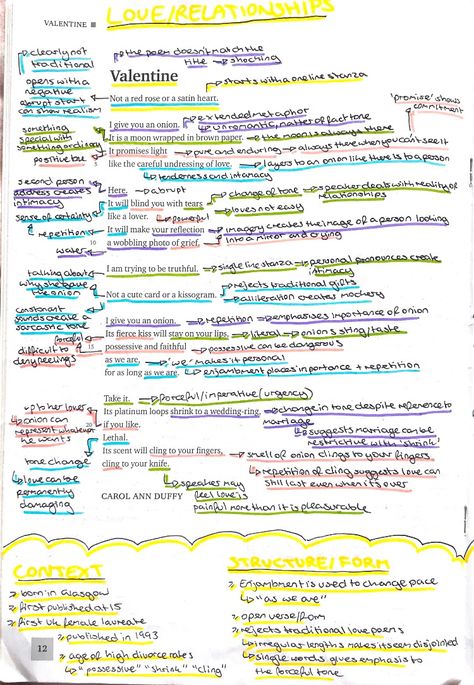 LOVE/RELATIONSHIPS
VALENTINE
↳ clearly not traditional
↳ the poem doesn't match the title → shocking
Valentine
↳ starts with a one line stanza
opens with a negative
abrupt start can show realism
Not a red rose or a satin heart.
'promise' shows commitment
↳ extended metaphor
something special with something ordinary
I give you an onion.
↳ unromantic, matter of fact tone
It is a moon wrapped in brown paper.
→ the moon is always there
positive but
It promises light
→ pure and enduring → always there when you can't see it
like the careful undressing of love.
↳ layers to an onion like there is to a person
↳ tenderness and intimacy
second person address creates intimacy
Here.
→ abrupt
↳ change of tone → speaker deals with reality of relationships
It will blind you with tears
↳ love's not easy
sense of certainty
like a lover.
↳ powerful
↳ repetition
It will make your reflection
→ imagery creates the image of a person looking into a mirror and crying
water
10
a wobbling photo of grief.
talking about why she gave the onion
I am trying to be truthful.
→ single line stanza → personal pronouns create intimacy
↳ rejects traditional gifts
Not a cute card or a kissogram.
↳ alliteration creates mockery
constonant sounds create a sarcastic tone
I give you an onion.
→ repetition → emphasises importance of onion
forceful
Its fierce kiss will stay on your lips,
→ literal → onion's sting/taste
difficult to deny feelings
15
possessive and faithful
→ possessive can be dangerous
as we are,
→ 'we' makes it personal
for as long as we are.
↳ enjambment places importance + repetition
Take it.
→ forceful/imperative (urgency)
↳ up to her lover
Its platinum loops shrink to a wedding-ring,
→ change in tone despite reference to marriage
↳ onion can represent whatever he wants
20
if you like.
↳ suggests marriage can be restrictive with 'shrink'
Lethal.
tone change
Its scent will cling to your fingers,
→ smell of onion clings to your fingers
cling to your knife.
↳ repetition of cling suggests love can still last even when it's over
↳ love can be permanently damaging
↳ speaker may feel love is painful more than it is pleasurable
CAROL ANN DUFFY
CONTEXT
» born in Glasgow
» first published at 15
» first UK female laureate
» published in 1993
» age of high divorce rates
↳ "possessive" "shrink" "cling"
12
STRUCTURE/FORM
» Enjambment is used to change pace
↳ "as we are"
» open verse/form
» rejects traditional love poems
↳ irregular lengths makes it seem disjointed
↳ single words gives emphasis to the forceful tone